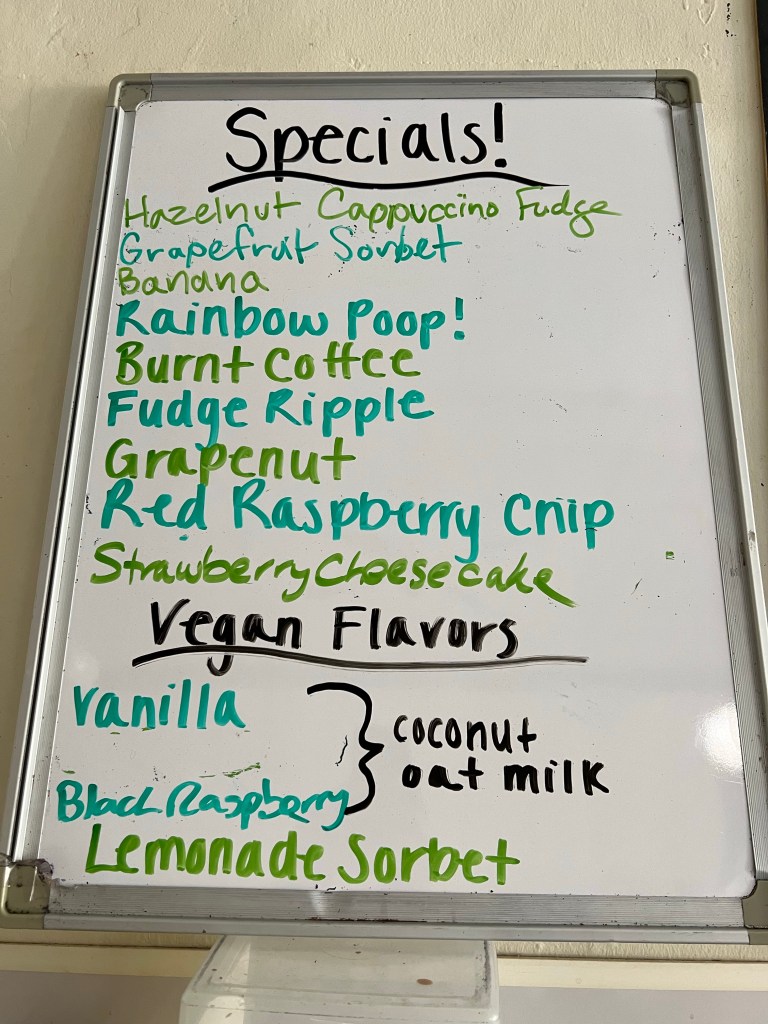 Specials!
Hazelnut Cappuccino Fudge
Grapefruit Sorbet
Banana
Rainbow Poop!
Burnt Coffee
Fudge Ripple
Grapenut
Red Raspberry Chip
Strawberry Cheesecake
Vegan Flavors
Vanilla
coconut
oat milk
Black Raspberry
Lemonade Sorbet